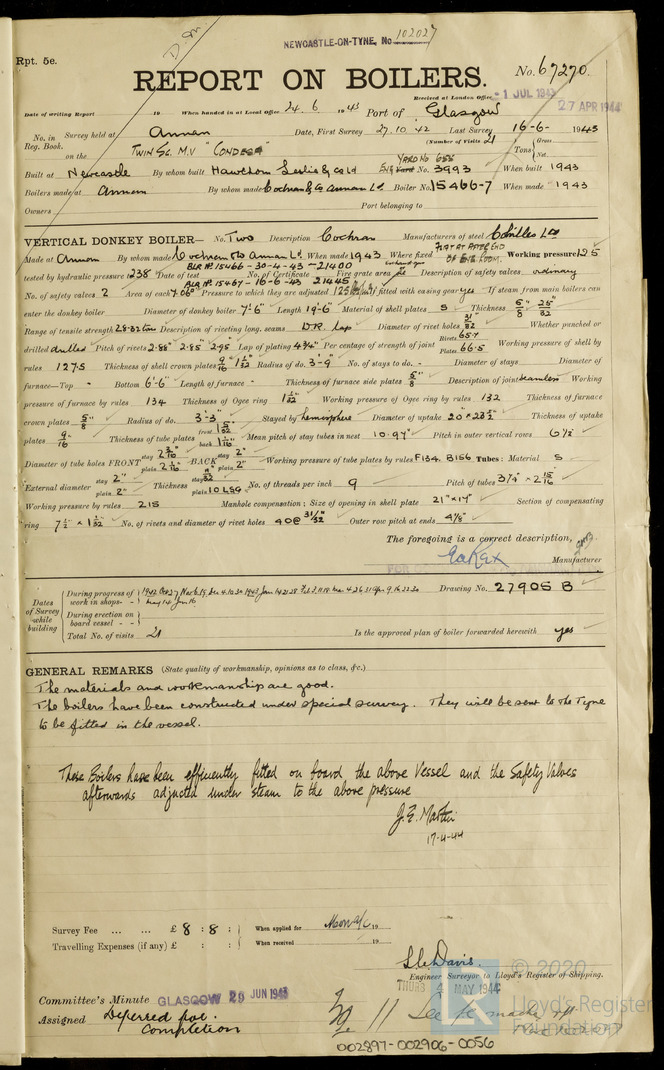 NEWCASTLE-ON-TYNE. No 102027
Rpt. 5e.
REPORT ON BOILERS.
No. 67270.
Received at London Office -1 JUL 1943
27 APR 1944
Date of writing Report 19 When handed in at Local Office 24. 6. 1943 Port of Glasgow
No. in Reg. Book. Survey held at Annan Date, First Survey 27.10.42 Last Survey 16-6- 1943
(Number of Visits 21)
on the TWIN SC. M.V "CONDESA" Tons { Gross Net.
Built at Newcastle By whom built Hawthorn Leslie & Co Ld YARD No 656 ENG No. 3993 When built 1943
Boilers made at Annan By whom made Cochran & Co Annan Ld. Boiler No. 15466-7 When made 1943
Owners Port belonging to
VERTICAL DONKEY BOILER— No. Two Description Cochran Manufacturers of steel Colvilles Ltd
Made at Annan By whom made Cochran & Co Annan Ld. When made 1943 Where fixed FLAT AT AFTER END OF ENG. ROOM. Working pressure 125
BLR No. 15466 - 30-4-43 - 21400
tested by hydraulic pressure to 238 Date of test No. of Certificate Fire grate area Description of safety valves ordinary
BLR No. 15467 - 16-6-43 21445
No. of safety valves 2 Area of each 7.06" Pressure to which they are adjusted 125 If fitted with easing gear yes If steam from main boilers can
enter the donkey boiler Diameter of donkey boiler 7'-6" Length 19'-6" Material of shell plates S Thickness 5/8" 25/32"
Range of tensile strength 28-32 tons Description of riveting long. seams D.R. lap Diameter of rivet holes 31/32" Whether punched or
drilled drilled Pitch of rivets 2.88" 2.85" 2.95" Lap of plating 4 3/4" Per centage of strength of joint Rivets 65.7 Plates 66.5 Working pressure of shell by
rules 127.5 Thickness of shell crown plates 9/16" 1 1/32" Radius of do. 3'-9" No. of stays to do. - Diameter of stays Diameter of
furnace—Top " Bottom 6'-6" Length of furnace - Thickness of furnace side plates 5/8" Description of joint seamless Working
pressure of furnace by rules 134 Thickness of Ogee ring 1 1/32" Working pressure of Ogee ring by rules 132 Thickness of furnace
crown plates 5/8" Radius of do. 3'-3" Stayed by hemisphere Diameter of uptake 20" x 23 1/2" Thickness of uptake
plates 9/16" Thickness of tube plates front 1 5/32" back 1 1/16" Mean pitch of stay tubes in nest 10.97" Pitch in outer vertical rows 6 1/2"
Diameter of tube holes FRONT stay plain 2 1/16" BACK stay 2" plain 2" Working pressure of tube plates by rules F134. B156 Tubes: Material S
External diameter stay 2" plain 2" Thickness stay plain 10 LSG No. of threads per inch 9 Pitch of tubes 3 1/4" x 2 15/16"
Working pressure by rules 215 Manhole compensation: Size of opening in shell plate 21" x 17" Section of compensating
ring 7 1/2" x 1 1/32" No. of rivets and diameter of rivet holes 40 @ 31/32" Outer row pitch at ends 4 1/8"
The foregoing is a correct description,
Manufacturer
Dates of Survey while building { During progress of work in shops- - 1942 Oct 27 Nov 6.19. Dec 4.10.30 1943 Jan 14.21.28
May 14 Jun 16
During erection on board vessel - -
Total No. of visits 21
Drawing No. 27905 B
Is the approved plan of boiler forwarded herewith yes
GENERAL REMARKS (State quality of workmanship, opinions as to class, &c.)
The materials and workmanship are good.
The boilers have been constructed under special survey. They will be sent to the Tyne
to be fitted in the vessel.
These Boilers have been efficiently fitted on board the above Vessel and the Safety Valves
afterwards adjusted under steam to the above pressure
J.E. Martin
17-4-44
Survey Fee ... ... £ 8 : 8 : When applied for 19
Travelling Expenses (if any) £ : : When received 19
Davis.
Engineer Surveyor to Lloyd's Register of Shipping.
THURS 4 MAY 1944
Committee's Minute GLASGOW 29 JUN 1943
Assigned Deferred for completion
See
© 2020
Lloyd's Register
Foundation
002897-002906-0056